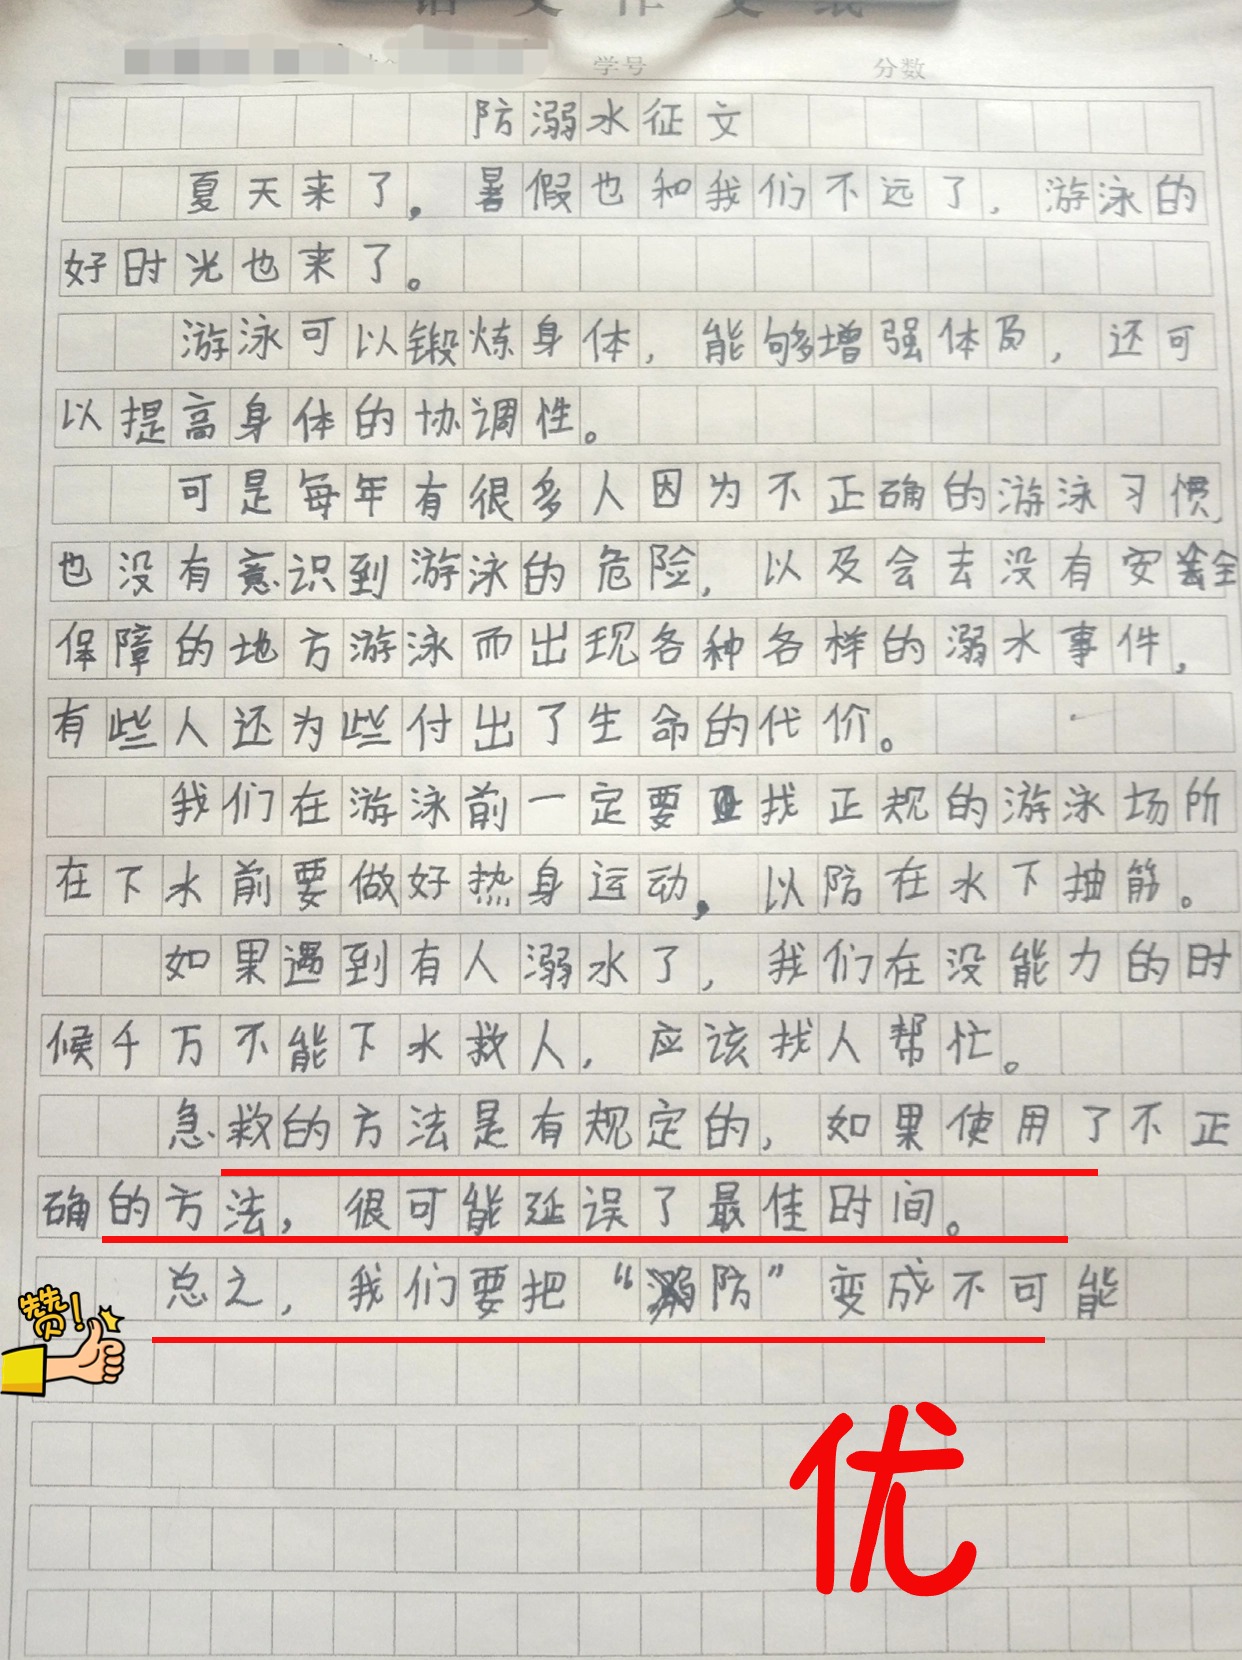 语文作文纸
学号 分数
防溺水征文
夏天来了。暑假也和我们不远了,游泳的
好时光也来了。
游泳可以锻炼身体,能够增强体及,还可
以提高身体的协调性。
可是每年有很多人因为不正确的游泳习惯,
也没有意识到游泳的危险,以及会去没有安全
保障的地方游泳而出现各种各样的溺水事件,
有些人还为些付出了生命的代价。
我们在游泳前一定要找正规的游泳场所
在下水前要做好热身运动,以防在水下抽筋。
如果遇到有人溺水了,我们在没能力的时
候千万不能下水救人,应该找人帮忙。
急救的方法是有规定的,如果使用了不正
确的方法,很可能延误了最佳时间。
总之,我们要把“防”变成不可能
赞!
优